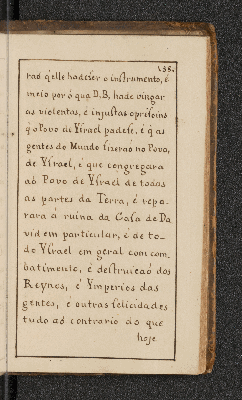 138.
rao q̃ elle hadeser o instrumento, é
meio por ó qua D.B. hade vingar
as violentas, é injustas oprisoins
q̃ o Povo de Ysrael padese, é q̃ as
gentes do Mundo fizeraõ no Povo,
de Ysrael, é que congregara
aó Povo de Ysrael de todas
as partes da Terra, é repa-
rara a ruina da Casa de Da
vid em particular, é de to-
do Ysrael em geral com com-
batimento, é destruicaõ dos
Reynos, é Ymperios das
gentes, é outras felicidades
tudo aó contrario do que
hoje